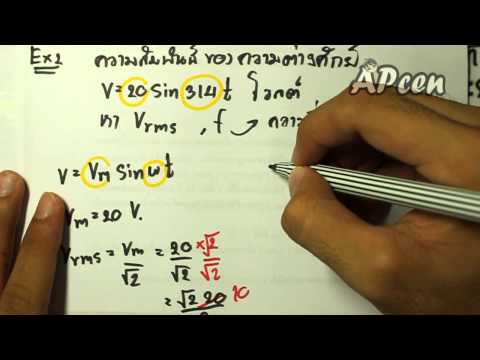 Ex2 ความสัมพันธ์ ของ ความต่างศักย์
V = 20 Sin 314t โวลต์
หา Vrms , f → ความ
V = Vm Sin ωt
Vm = 20 V.
Vrms = Vm/√2 = 20/√2 ×√2/√2
= √2 20/2 10
APcen